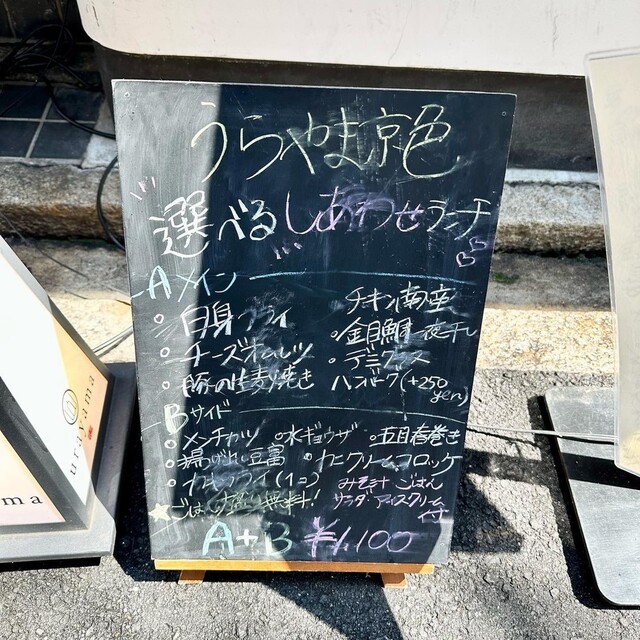 うらやま京色
選べるしあわせランチ
A メイン
・白身フライ
チキン南蛮
・チーズオムレツ
・金目鯛一夜干し
・豚の生姜焼き
・デミグラス
ハンバーグ(+250yen)
Bサイド
○メンチカツ ○水ギョウザ ○五目春巻き
○揚げ出し豆腐 ・カニクリームコロッケ
○カキフライ(1コ)
みそ汁 ごはん
サラダ・アイスクリーム
付
☆ごはん大盛り無料!
A+B ¥1,100
urayama
ama